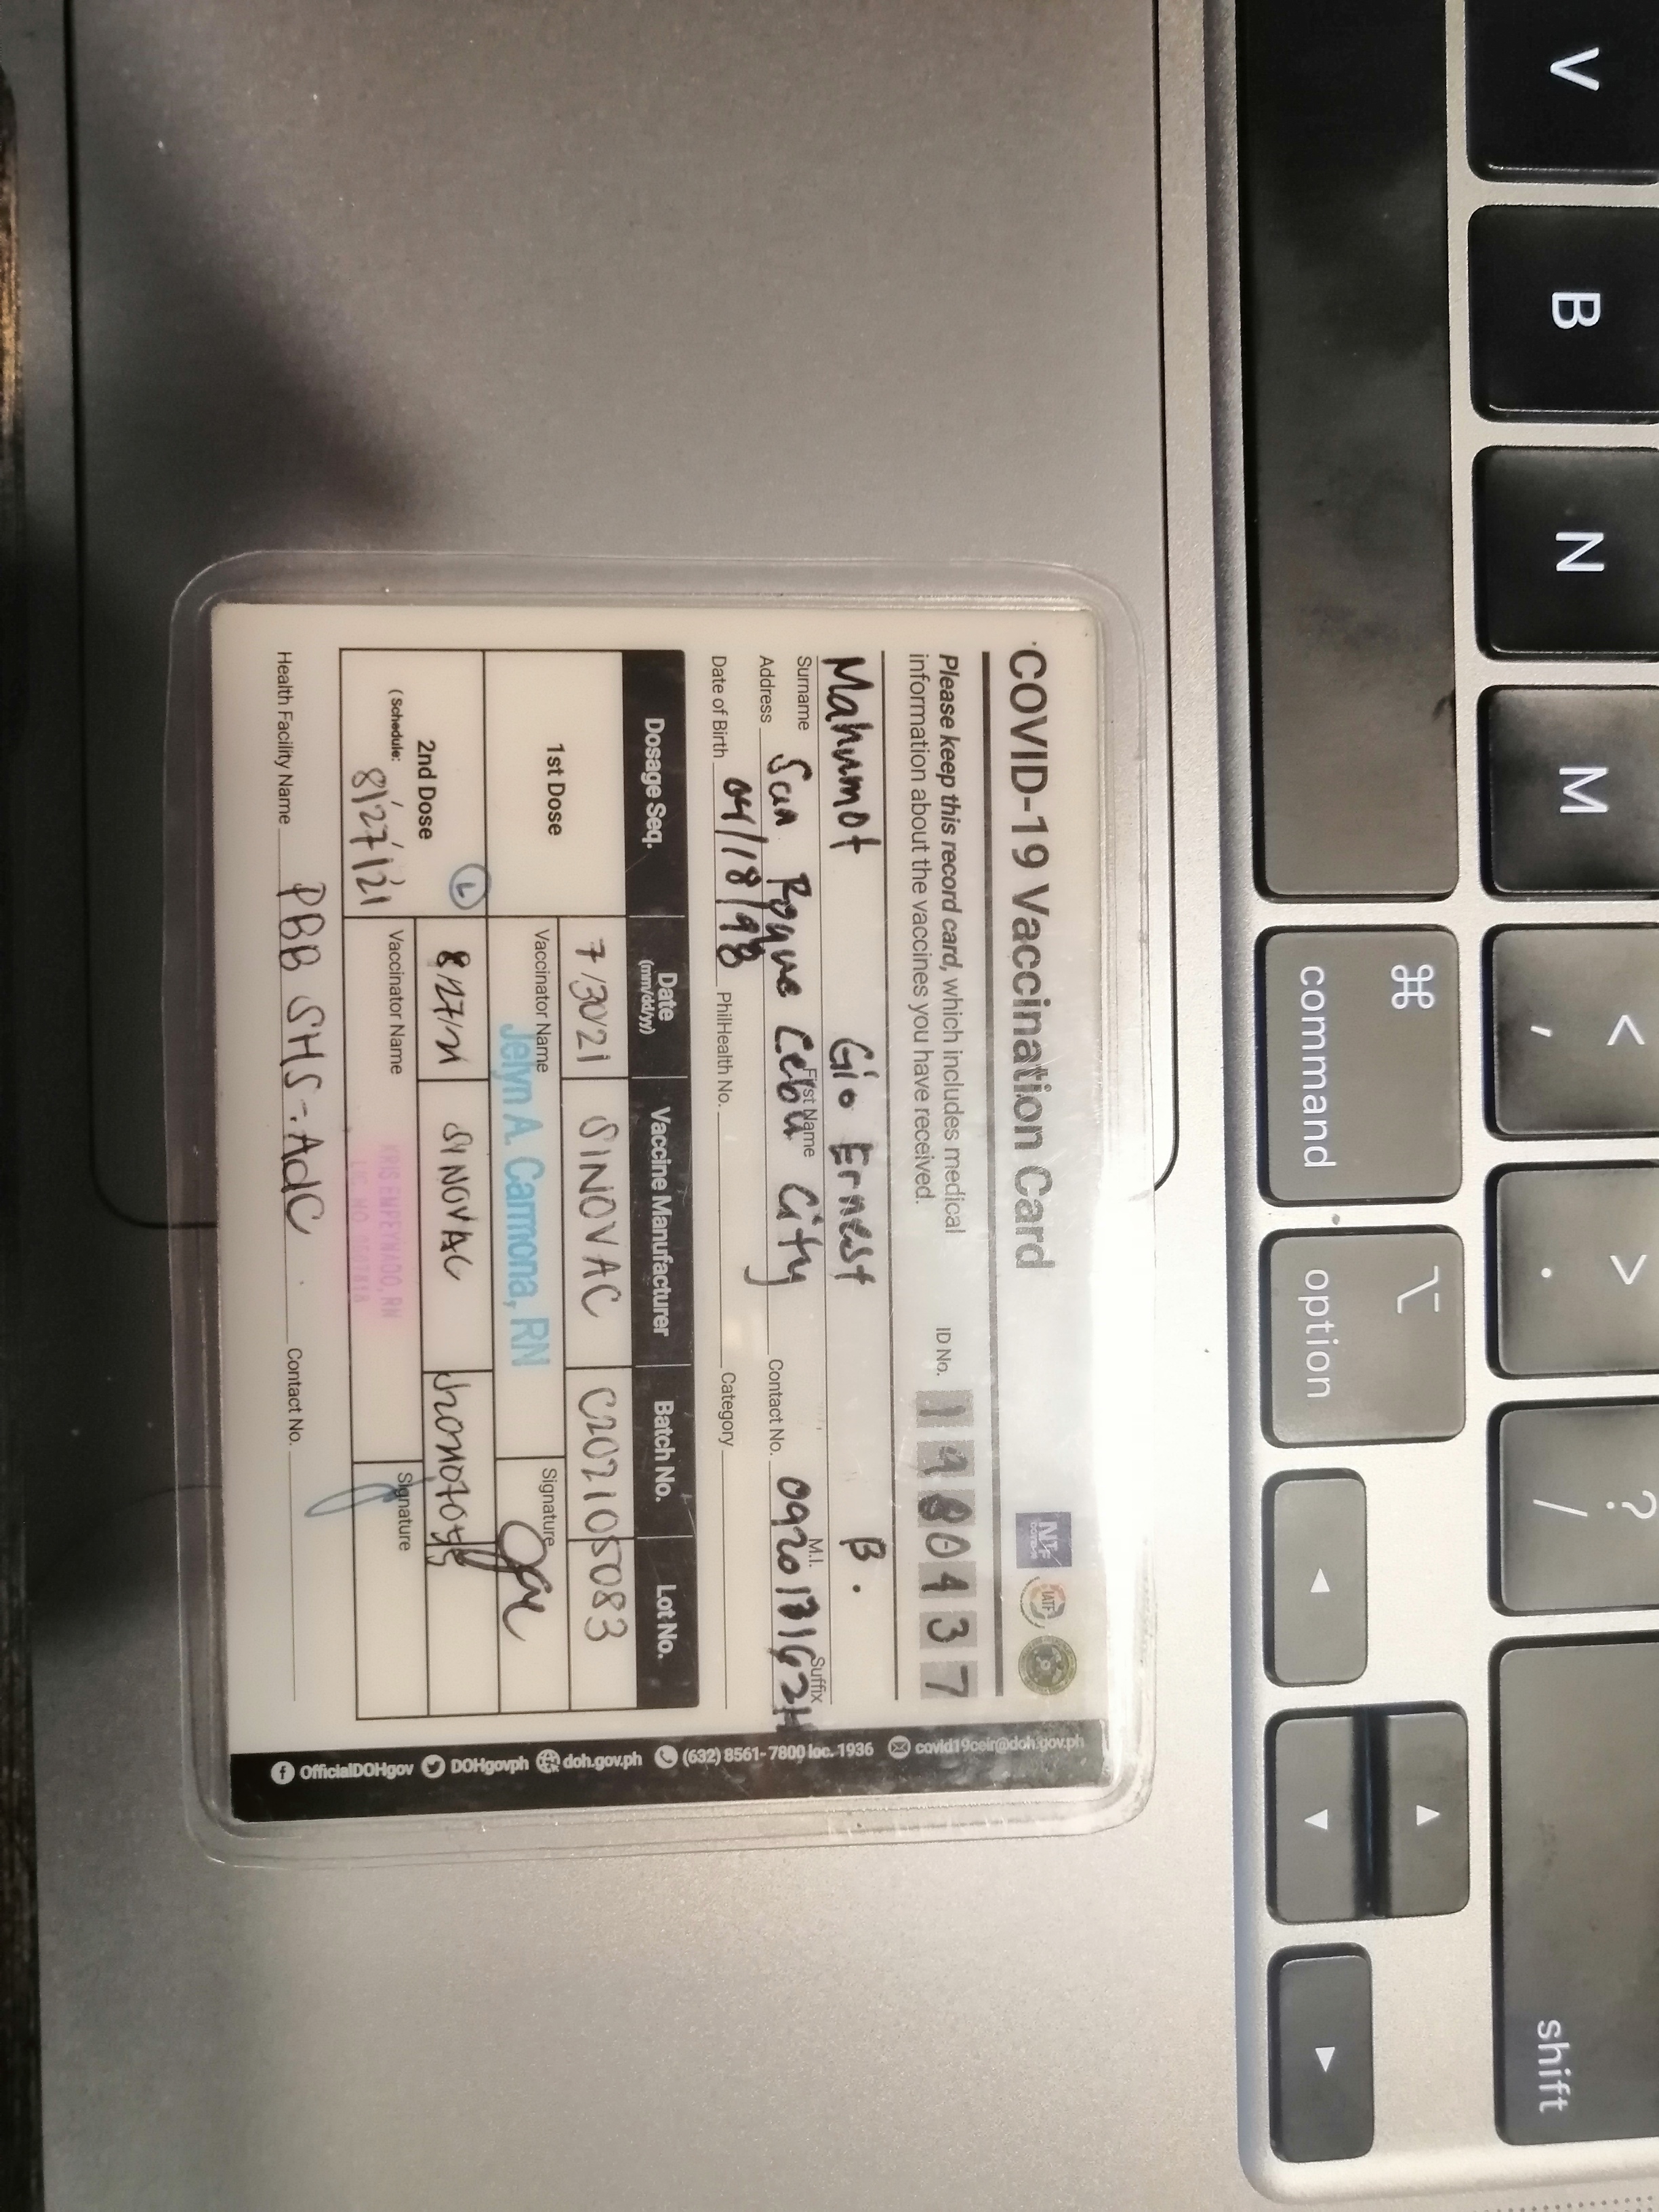 COVID-19 Vaccination Card
NTF
IATF
Please keep this record card, which includes medical
information about the vaccines you have received.
ID No. 1 4 8 0 4 3 7
Mahumot Gio Ernest B.
Surname First Name M.I. Suffix
Address San Roque Cebu City Contact No.
Date of Birth 04/18/98 PhilHealth No. Category
Dosage Seq. Date (mm/dd/yy) Vaccine Manufacturer Batch No. Lot No.
1st Dose 7/30/21 SINOVAC C202105083
Vaccinator Name Jelyn A. Carmona, RN Signature
2nd Dose L 8/27/21 SINOVAC
(Schedule: 8/27/21 Vaccinator Name Signature
Health Facility Name PBB SHS-AdC Contact No.
OfficialDOHgov DOHgovph doh.gov.ph (632) 8561-7800 loc. 1936 covid19ceir@doh.gov.ph
V
B
N
M
< ,
> .
? /
shift
⌘ command
⌥ option
◀
▲
▼
▶